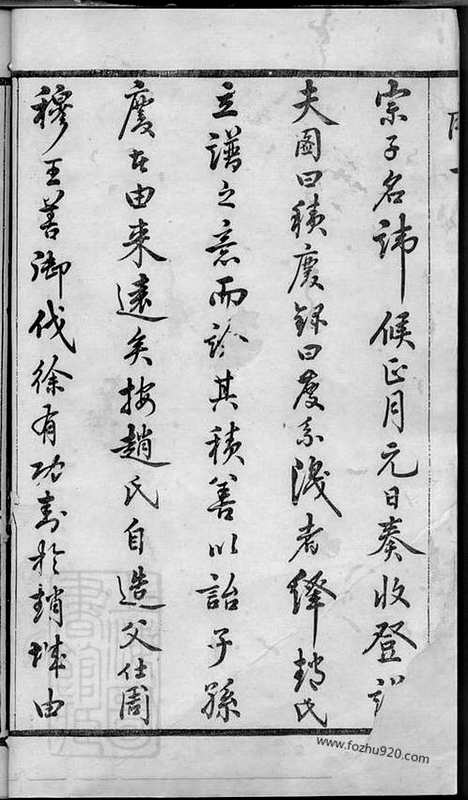 宗子名諱候正月元日奏收登
夫圖曰積慶錄曰慶系者繹趙氏
立譜之意而其積善以詒子孫
慶由來遠矣按趙氏自造父仕周
穆王善御伐徐有功封於趙城由
www.fozhu920.com